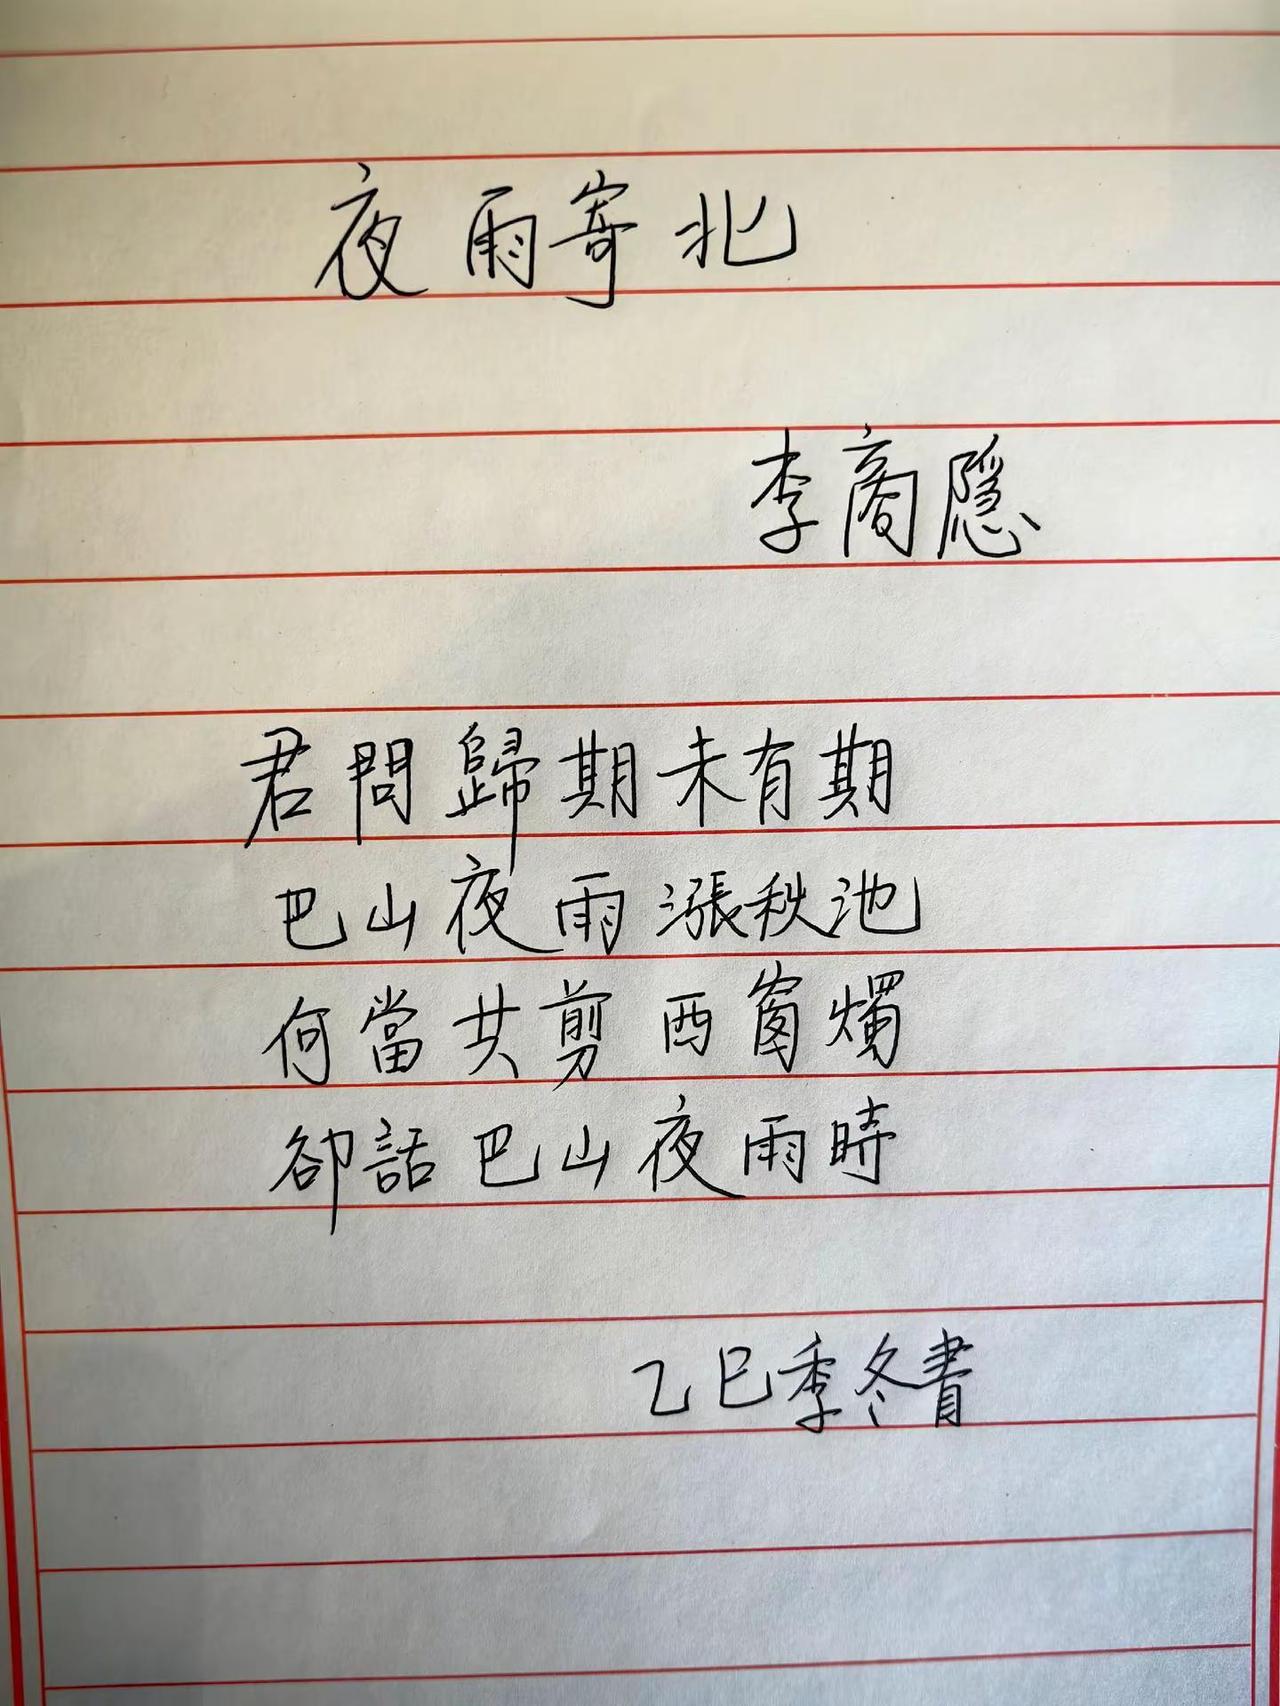 夜雨寄北
李商隱
君問歸期未有期
巴山夜雨漲秋池
何當共剪西窗燭
卻話巴山夜雨時
乙巳季冬書